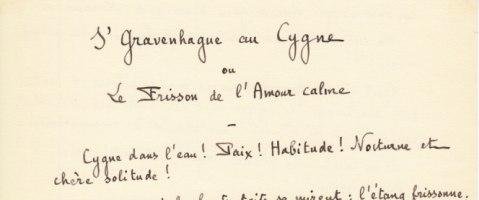 S' Gravenhague au Cygne
ou
Le Frisson de l'Amour calme
-
Cygne dans l'eau ! Paix ! Habitude ! Nocturne et
chère solitude !
toits se mirent : l'étang frissonne.